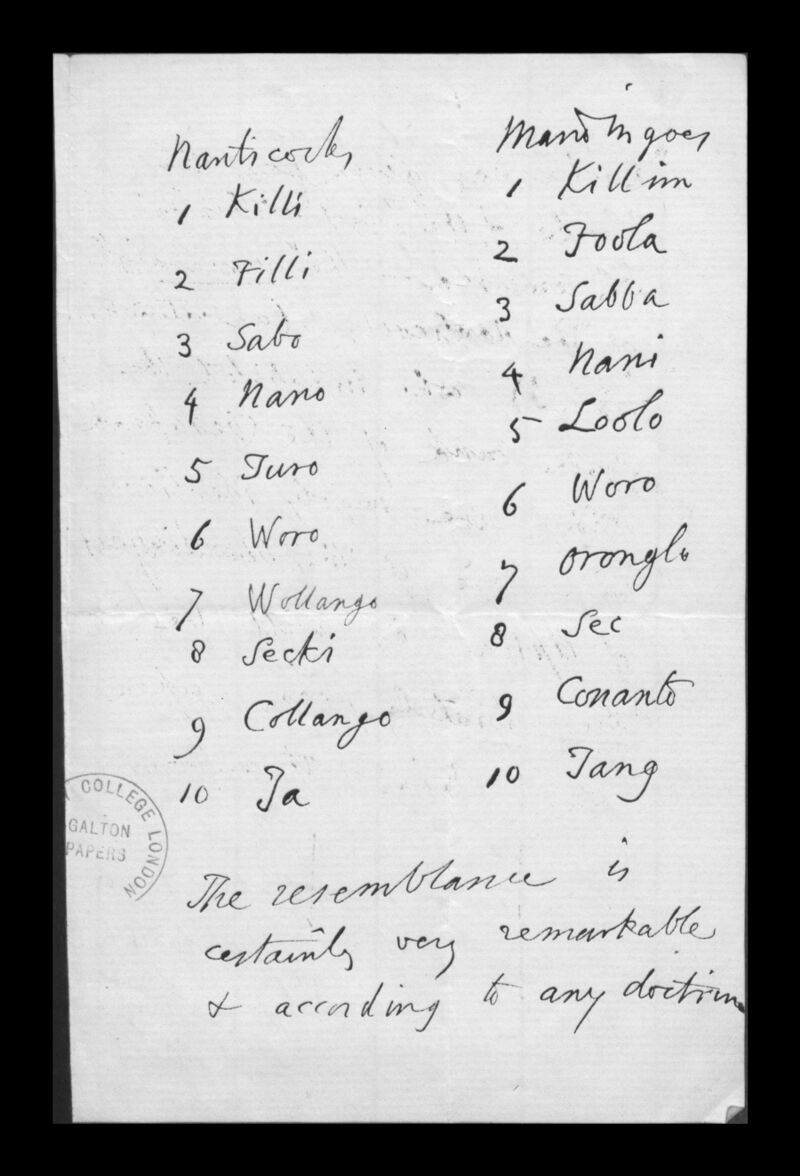 Nanticocks
1 Killi
2 Filli
3 Sabo
4 Nano
5 Turo
6 Woro
7 Wollango
8 Secki
9 Collango
10 Ta
Mandingoes
1 Killim
2 Foola
3 Sabba
4 Nani
5 Loolo
6 Woro
7 Oronglo
8 Sec
9 Conanto
10 Tang
The resemblance is
certainly very remarkable
& according to any doctrine
COLLEGE LONDON
GALTON
PAPERS